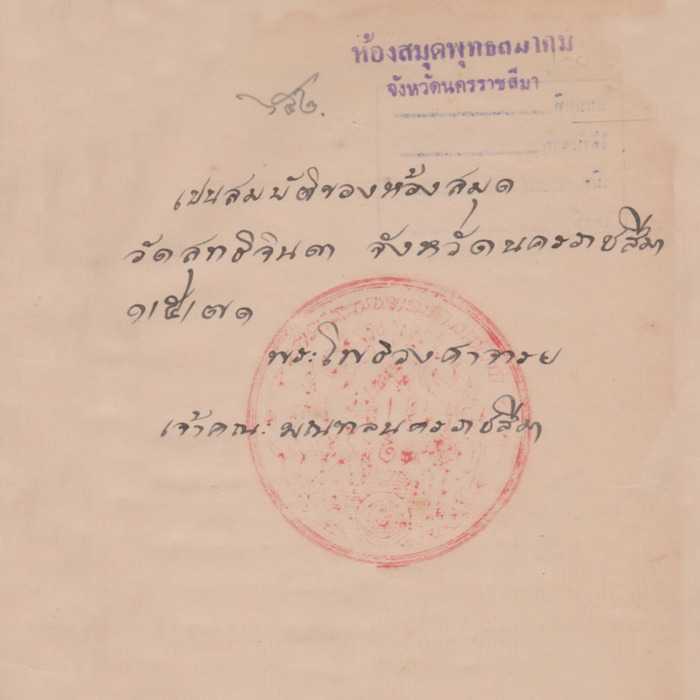 ห้องสมุดพุทธสมาคม
จังหวัดนครราชสีมา
เปนสมบัติของห้องสมุด
วัดสุทธิจินดา จังหวัดนครราชสีมา
๑/๕/๗๑
พระโพธิวงศาจารย
เจ้าคณะมณฑลนครราชสีมา